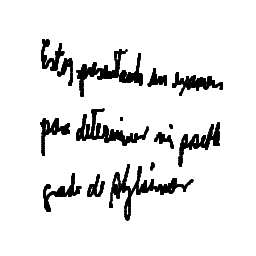 Estoy presentando un examen
para determinar mi posible
grado de Alzheimer